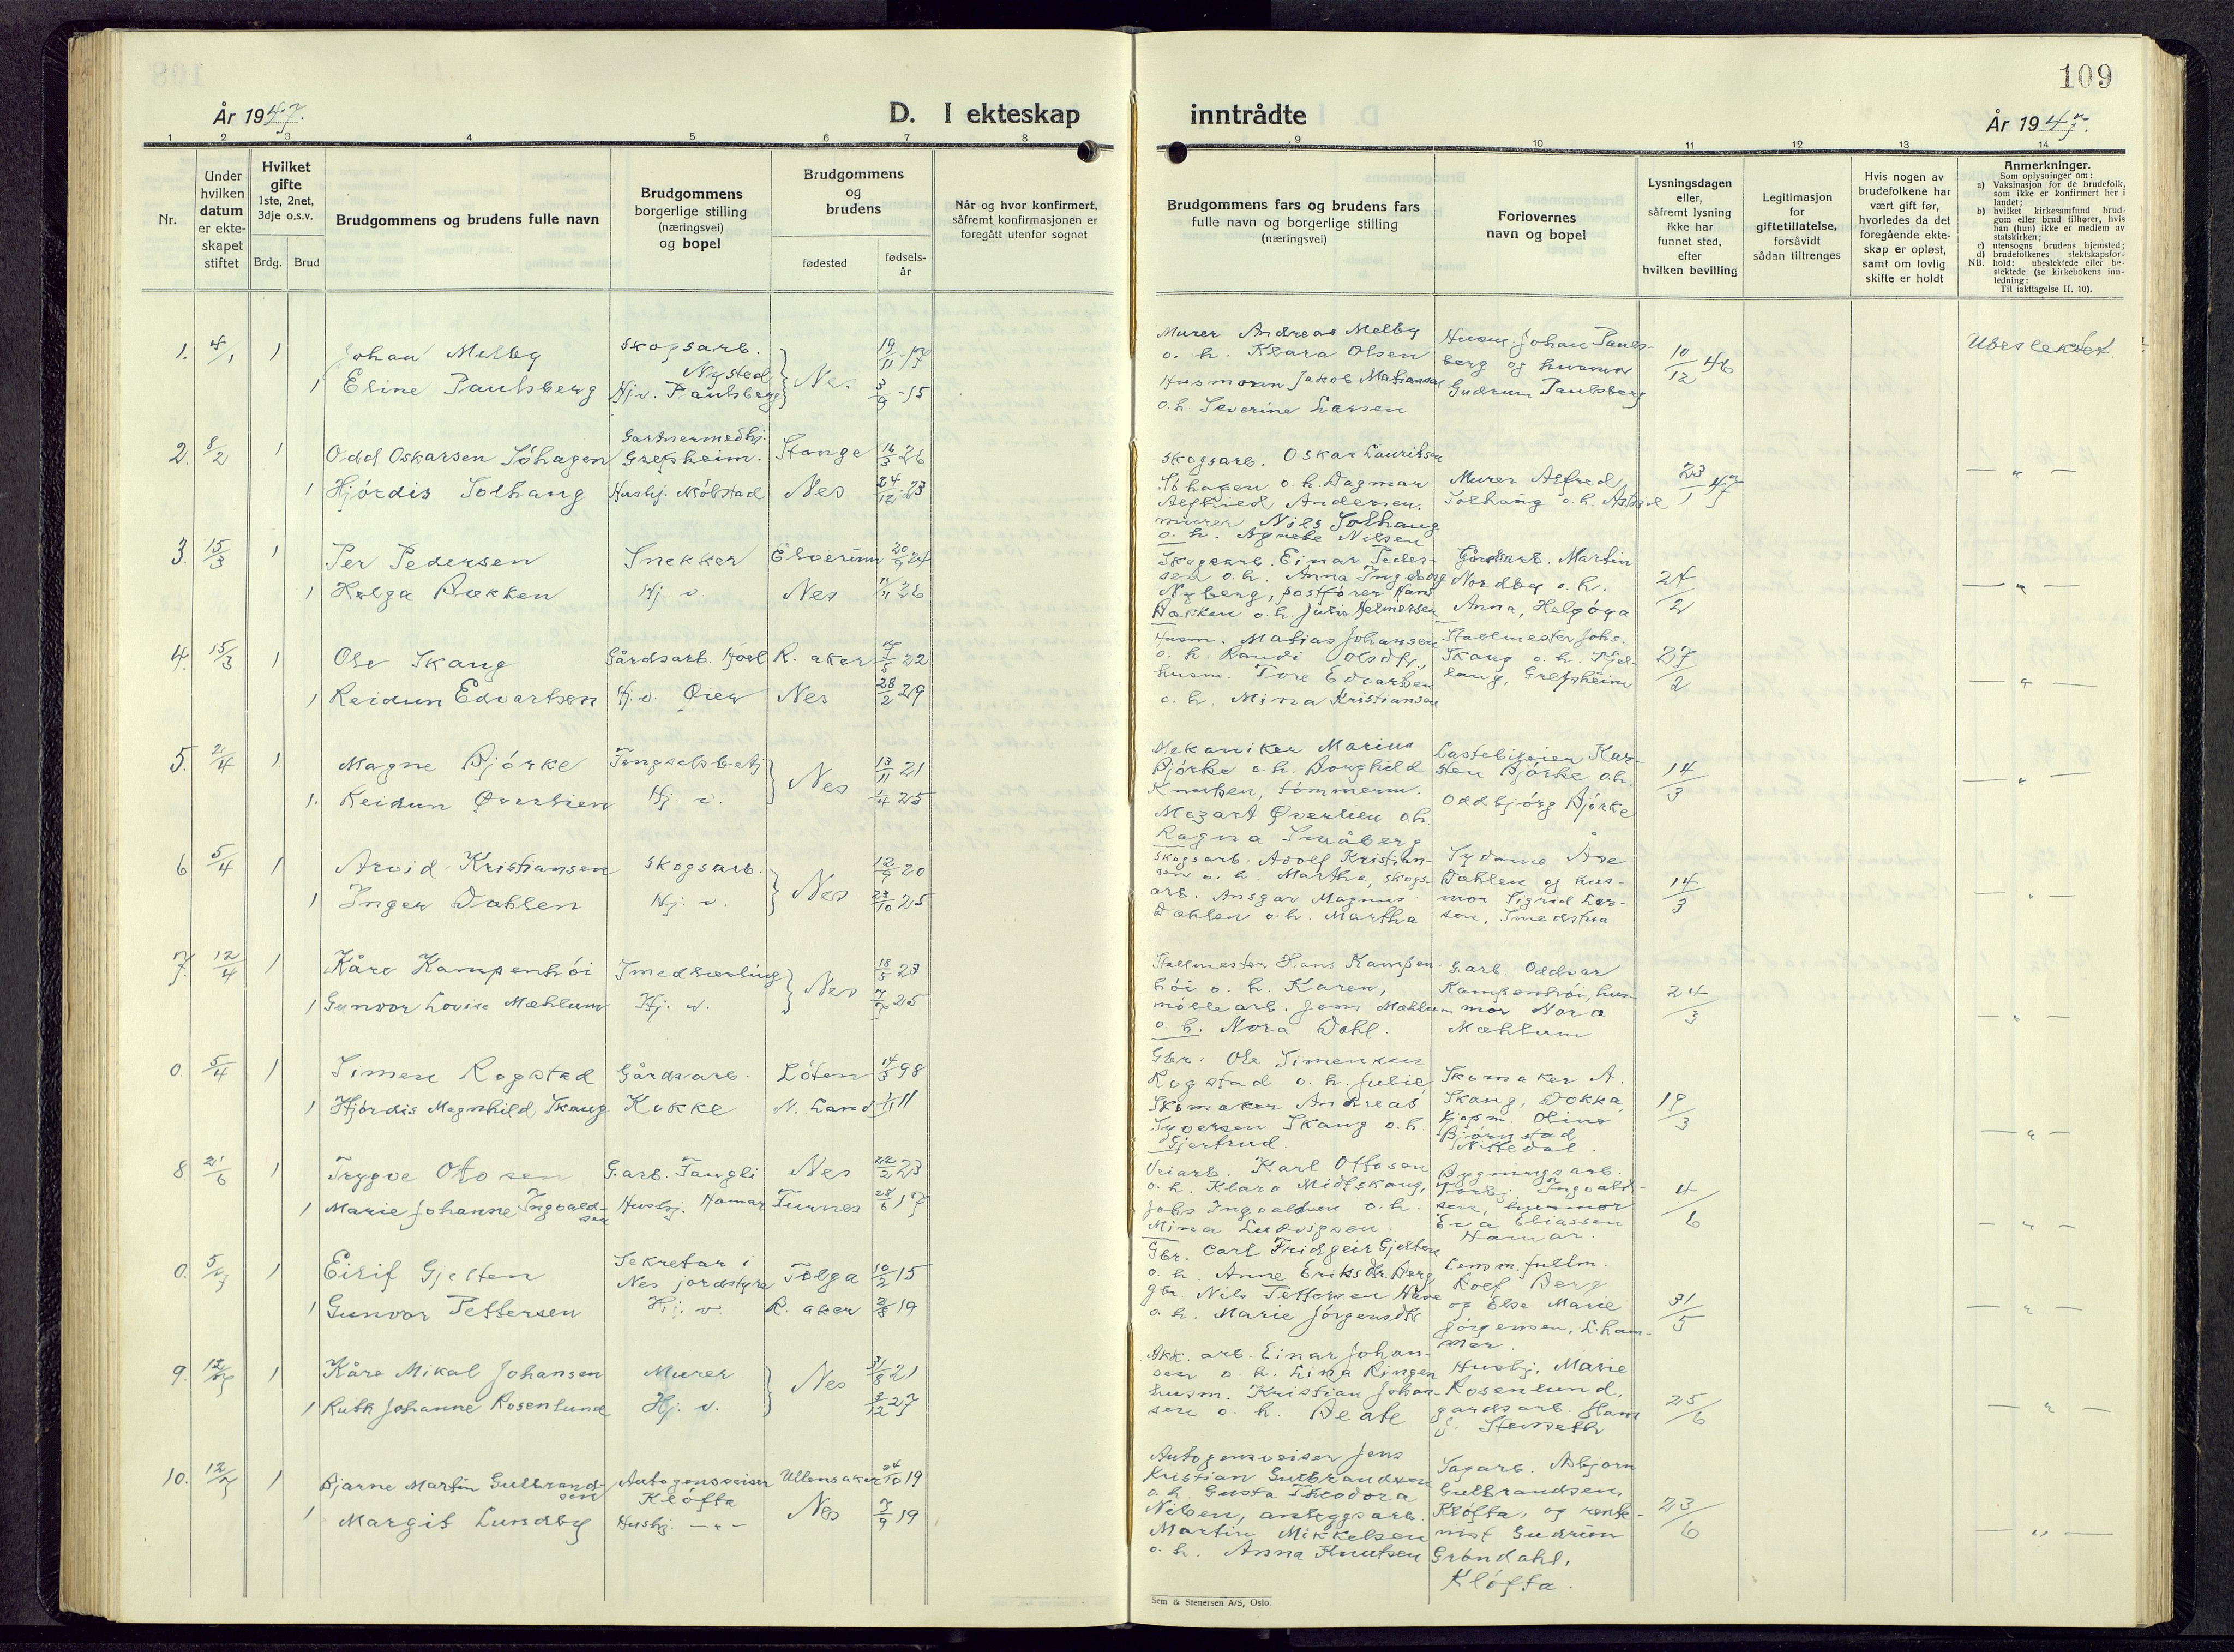 109
År 1947.
D. I ekteskap inntrådte
År 1947.
1 2 3 4 5 6 7 8 9 10 11 12 13 14
Nr.
Under hvilken datum er ekteskapet stiftet
Hvilket gifte 1ste, 2net, 3dje o.s.v.
Brdg. Brud
Brudgommens og brudens fulle navn
Brudgommens borgerlige stilling (næringsvei) og bopel
Brudgommens og brudens
fødested
fødsels-år
Når og hvor konfirmert, såfremt konfirmasjonen er foregått utenfor sognet
Brudgommens fars og brudens fars fulle navn og borgerlige stilling (næringsvei)
Forlovernes navn og bopel
Lysningsdagen eller, såfremt lysning ikke har funnet sted, efter hvilken bevilling
Legitimasjon for giftetillatelse, forsåvidt sådan tiltrenges
Hvis nogen av brudefolkene har vært gift før, hvorledes da det foregående ekteskap er opløst, samt om lovlig skifte er holdt
Anmerkninger.
Som oplysninger om:
a) Vaksinasjon for de brudefolk, som ikke er konfirmert her i landet;
b) hvilket kirkesamfund brudgom eller brud tilhører, hvis han (hun) ikke er medlem av statskirken;
c) utensogns brudens hjemsted;
d) brudefolkenes slektskapsforhold: ubeslektede eller beslektede (se kirkebokens innledning:
NB.
Til iakttagelse II, 10).
1. 4/1 1 Johan Melby Skogsarb. Nysted 19/11-17
1 Eline Paulsberg Hj.v. Paulsberg Nes 3/9-15
Murer Andreas Melby
o. h. Klara Olsen
Husmann Jakob
o.h. Severine Larsen
Husm. Johan Pauls-
berg og husmor
Gudrun Paulsberg
10/12 46
Ubeslektet.
2. 8/2 1 Odd Oskarsen Söhagen Gartnermedhj. Grefsheim. Stange 16/3 26
1 Hjördis Solhaug Hushj. Nes 24/12-23
Skogsarb. Oskar Lauritsen
Söhagen o.h. Dagmar
Andersen.
murer Nils Solhaug
o. h. Agnete Nilsen
Murer Alfred
Solhaug o.h.
23/1 47
— " —
3. 15/3 1 Per Pedersen Snekker Elverum 20/9 24
1 Helga Bakken Hj. v. Nes 11/11 26
Skogsarb. Einar Peder-
sen o.h. Anna Ingeborg
Nyberg, postfører Hans
Bakken o.h. Julie Helmersen
Gårdsarb. Martin
Nordby o.h.
Anna, Helgöya
24/2
— " —
4. 15/3 1 Ole Skaug Gårdsarb. R. aker 22
1 Reidun Edvartsen Hj.v. Nes 28/2 29
Husm. Matias Johansen
o. h. Randi Olsdtr.,
husm. Tore Edvartsen
o. h. Mina Kristiansen
Stallmester Johs.
Skaug o.h.
Grefsheim
27/2
— " —
5. 2/4 1 Magne Björke Fengselsbetj 13/11 21
1. Reidun Øverlien Hj. v. Nes 1/4 25
Mekaniker Marius
Björke o.h. Borghild
Knutsen, tömmerm.
Mozart Øverlien o.h.
Ragna Småberg
Lastebileier Kar-
sten Björke o.h.
Oddbjörg Björke
14/3
— " —
6 5/4 1 Arvid Kristiansen Skogsarb. 20
1 Inger Dahlen Hj. v. Nes 23/10 25
Skogsarb. Adolf Kristian-
sen o. h. Martha, skogs-
arb. Ansgar Magnus
Dahlen o.h. Martha
Sydame Åse
Dahlen og hus-
mor Sigrid Lar-
sen, Smedstua
14/3
— " —
7. 12/4 1 Kåre Kampenhöi Smedlærling 18/5 23
1 Gunvor Lovise Mæhlum Hj. v. Nes 25
Stallmester Hans Kampen-
höi o. h. Karen,
möllearb. Jens Mæhlum
o. h. Nora Dahl.
G.arb. Oddvar
Kampenhöi, hus-
mor Nora
Mæhlum
24/3
— " —
0. 5/4 1 Simen Rogstad Gårdsarb. Löten 14/3 98
1 Hjördis Magnhild Skaug Kokke N. Land 11
Gbr. Ole Simensen
Rogstad o. h. Julie,
Skomaker Andreas
Syversen Skaug o.h.
Gjertrud.
Skomaker A.
Skaug, Dokka,
kjøpm. Oline
Björnstad
Nittedal.
19/3
— " —
8. 21/6 1 Trygve Ottosen G.arb. Taugli Nes 22/2 23
1 Marie Johanne Ingvald-
sen Hushj. Hamar Furnes 28/6 17
Veiarb. Karl Ottosen
o. h. Klara Midtskaug,
Johs Ingvaldsen o.h.
Mina Ludvigsen.
Bygningsarb.
Torbj. Ingvald-
sen, husmor
Eva Eliassen
Hamar.
4/6
— " —
0. 5/7 1 Eilif Gjelten Sekretær i
Nes jordstyre Tolga 10/2 15
1 Gunvor Pettersen Hj. v. R. aker 2/8 19
Gbr. Carl Fridgeir Gjelten
o. h. Anne Eriksdtr. Berg
gbr. Nils Pettersen
o. h. Marie Jörgensdtr
Lensm.fullm.
Rolf Berg
og Else Marie
Jörgensen, L.ham-
mer.
31/5
— " —
9. 12/7 1 Kåre Mikal Johansen Murer 31/8 21
1 Ruth Johanne Rosenlund Hj. v. Nes 3/12 27
Akk. arb. Einar Johan-
sen o. h. Lina Ringen
husm. Kristian Johan-
sen o. h. Beate
Hushj. Marie
Rosenlund,
gårdsarb. Hans
J. Stenseth
25/6
— " —
10. 12/7 1 Bjarne Martin Gulbrand-
sen Autogensveiser
Klöfta Ullensaker 24/10 19
1 Margit Lundby Hushj. — " — Nes 7/9 19
Autogensveiser Jens
Kristian Gulbrandsen
o.h. Gusta Theodora
Nilsen, anleggsarb.
Martin Mikkelsen
o. h. Anna Knutsen
Sagarb. Asbjörn
Gulbrandsen,
Klöfta, og
Gudrun
Gröndahl,
Klöfta.
23/6
— " —
Sem & Stenersen A/S, Oslo.